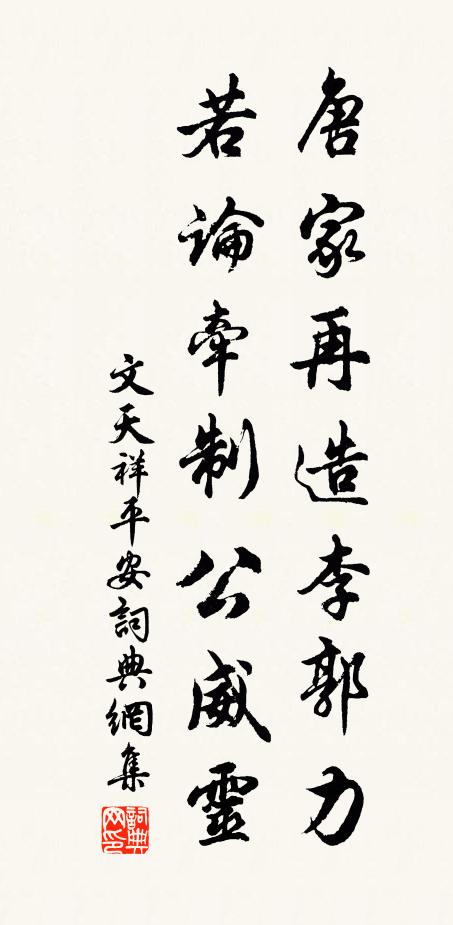 唐家再造李郭力
若論牽制公威靈
文天祥平安詞典網集
詞典網印